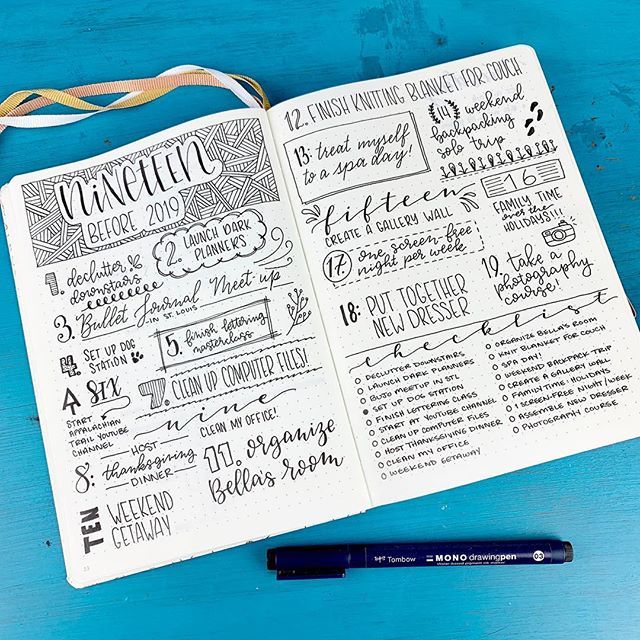 nineteen
BEFORE 2019
1. declutter
downstairs
2. LAUNCH DARK
PLANNERS
3. Bullet Journal Meet up
IN ST. LOUIS
4. SET UP DOG
STATION
5. finish lettering
masterclass
SIX
START
APPALACHIAN
TRAIL YOUTUBE
CHANNEL
7. CLEAN UP COMPUTER FILES!
8: HOST
thanksgiving
DINNER
nine
CLEAN MY OFFICE!
TEN WEEKEND
GETAWAY
11. organize
Bella's room
12. FINISH KNITTING BLANKET FOR COUCH
13: treat myself
to a spa day!
weekend
backpacking
solo trip
fifteen
CREATE A GALLERY WALL
16
FAMILY TIME
over the
HOLIDAYS!!!
17. one screen free
night per week
18: PUT TOGETHER
NEW DRESSER
19. take a
photography
course!
checklist
DECLUTTER DOWNSTAIRS
LAUNCH DARK PLANNERS
BUJO MEETUP IN STL
SET UP DOG STATION
FINISH LETTERING CLASS
START AT YOUTUBE CHANNEL
CLEAN UP COMPUTER FILES
HOST THANKSGIVING DINNER
CLEAN MY OFFICE
WEEKEND GETAWAY
ORGANIZE BELLA'S ROOM
KNIT BLANKET FOR COUCH
SPA DAY!
WEEKEND BACKPACK TRIP
CREATE A GALLERY WALL
FAMILY TIME: HOLIDAYS
1 SCREEN-FREE NIGHT/WEEK
ASSEMBLE NEW DRESSER
PHOTOGRAPHY COURSE
Tombow MONO drawing pen 03